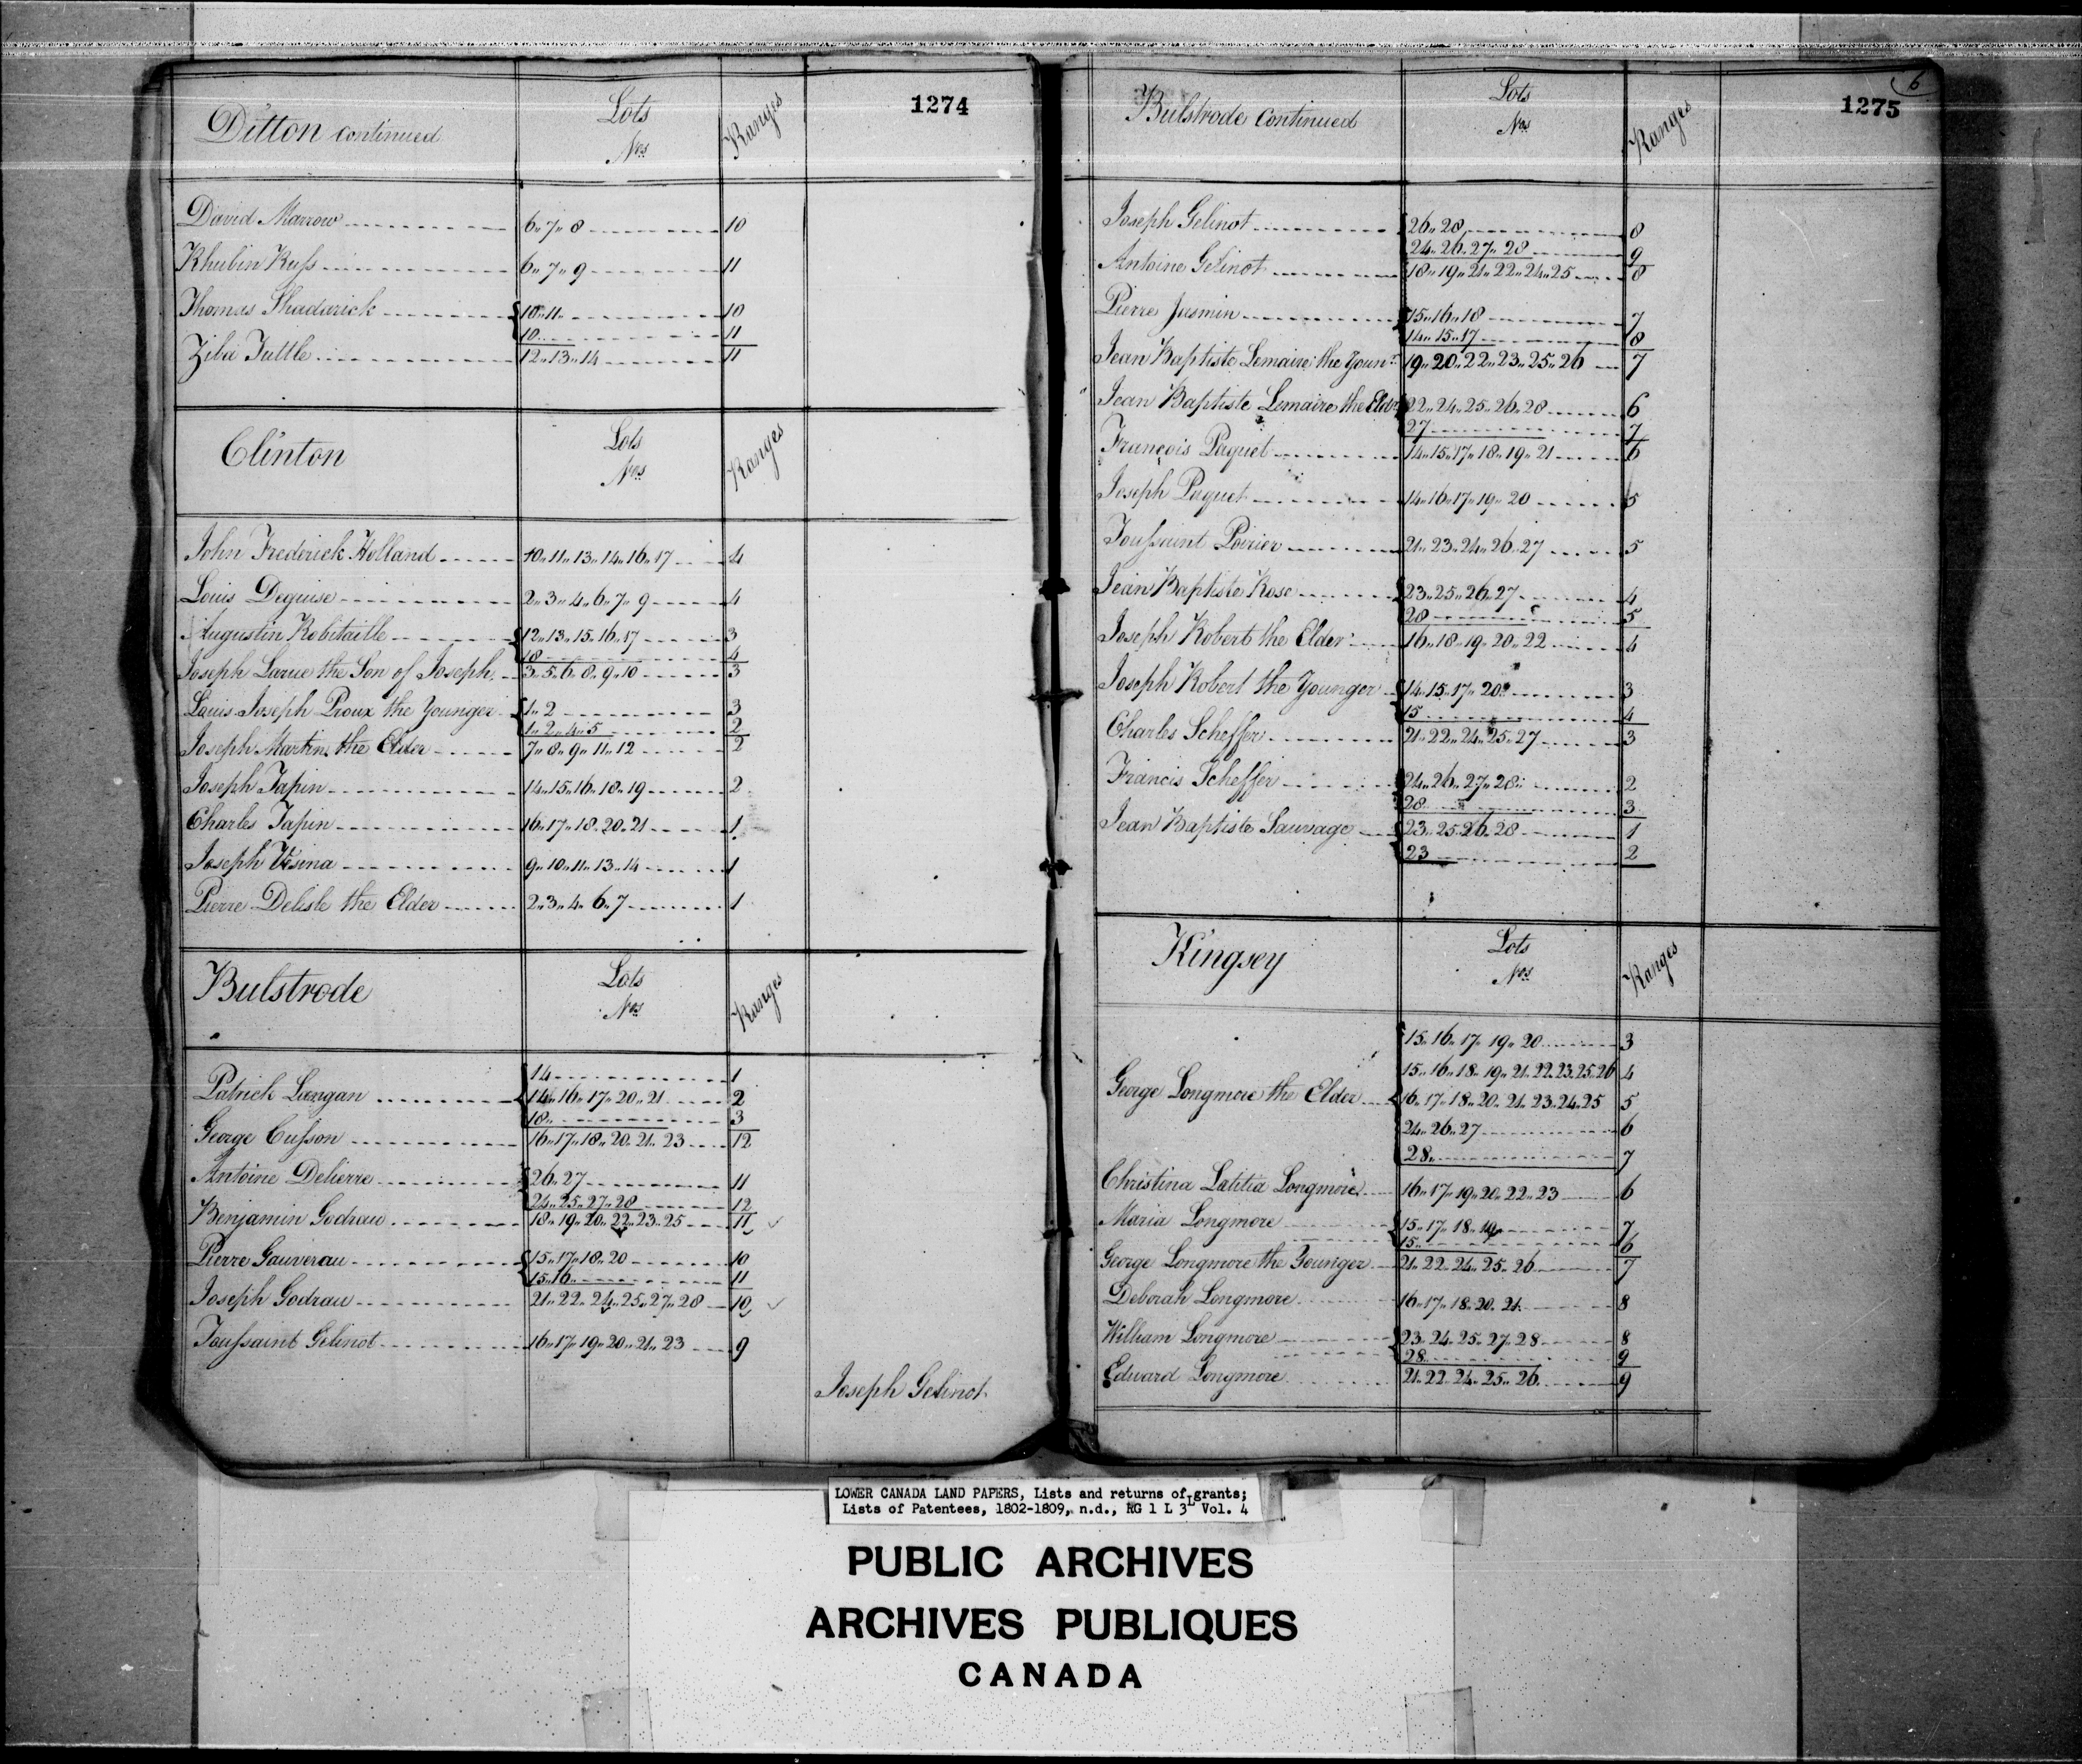 1274
Ditton continued Lots Nos Ranges
David Marrow 6.. 7.. 8 10
Rhubin Russ 6.. 7.. 9 11
Thomas Shadarick 10.. 11.. 10
10 11
Ziba Tuttle 12.. 13.. 14 11
Clinton Lots Nos Ranges
John Frederick Holland 10.. 11.. 13.. 14.. 16.. 17 4
Louis Deguise 2.. 3.. 4.. 6.. 7.. 9 4
Augustin Robitaille 12.. 13.. 15.. 16.. 17 3
18 4
Joseph Larue the Son of Joseph 3.. 5.. 6.. 8.. 9.. 10 3
Louis Joseph Proux the Younger 1.. 2 3
1.. 2.. 4.. 5 2
Joseph Martin the Elder 7.. 8.. 9.. 11.. 12 2
Joseph Tapin 14.. 15.. 16.. 18.. 19 2
Charles Tapin 16.. 17.. 18.. 20.. 21 1
Joseph Vesina 9.. 10.. 11.. 13.. 14 1
Pierre Delisle the Elder 2.. 3.. 4.. 6.. 7 1
Bulstrode Lots Nos Ranges
14 1
Patrick Langan 14.. 16.. 17.. 20.. 21 2
18.. 3
George Cusson 16.. 17.. 18.. 20.. 21.. 23 12
Antoine Delierre 26.. 27 11
24.. 25.. 27.. 28 12
Benjamin Godrau 18.. 19.. 20.. 22.. 23.. 25 11
Pierre Gauverau 15.. 17.. 18.. 20 10
15.. 16 11
Joseph Godrau 21.. 22.. 24.. 25.. 27.. 28 10
Toussaint Gelinot 16.. 17.. 19.. 20.. 21.. 23 9
Joseph Gelinot
6
1275
Bulstrode Continued Lots Nos Ranges
Joseph Gelinot 26.. 28 8
24.. 26.. 27.. 28 9
Antoine Gelinot 18.. 19.. 21.. 22.. 24.. 25 8
Pierre Jasmin 15.. 16.. 18 7
14.. 15.. 17 8
Jean Baptiste Lemaire the Younr 19.. 20.. 22.. 23.. 25.. 26 7
Jean Baptiste Lemaire the Eldr 22.. 24.. 25.. 26.. 28 6
27 7
François Paquet 14.. 15.. 17.. 18.. 19.. 21 6
Joseph Paquet 14.. 16.. 17.. 19.. 20 5
Toussaint Poirier 21.. 23.. 24.. 26.. 27 5
Jean Baptiste Rose 23.. 25.. 26.. 27 4
28 5
Joseph Robert the Elder 16.. 18.. 19.. 20.. 22 4
Joseph Robert the Younger 14.. 15.. 17.. 20 3
15 4
Charles Scheffer 21.. 22.. 24.. 25.. 27 3
Francis Scheffer 24.. 26.. 27.. 28.. 2
28 3
Jean Baptiste Sauvage 23.. 25.. 26.. 28 1
23 2
Kingsey Lots Nos Ranges
15.. 16.. 17.. 19.. 20 3
15.. 16.. 18.. 19.. 21.. 22.. 23.. 25.. 26 4
George Longmore the Elder 16.. 17.. 18.. 20.. 21.. 23.. 24.. 25 5
24.. 26.. 27 6
28.. 7
Christina Latitia Longmore 16.. 17.. 19.. 20.. 22.. 23 6
Maria Longmore 15.. 17.. 18.. 19 7
15.. 6
George Longmore the Younger 21.. 22.. 24.. 25.. 26 7
Deborah Longmore 16.. 17.. 18.. 20.. 21 8
William Longmore 23.. 24.. 25.. 27.. 28 8
28 9
Edward Longmore 21.. 22.. 24.. 25.. 26 9
LOWER CANADA LAND PAPERS, Lists and returns of grants;
Lists of Patentees, 1802-1809, n.d., RG 1 L 3L Vol. 4
PUBLIC ARCHIVES
ARCHIVES PUBLIQUES
CANADA